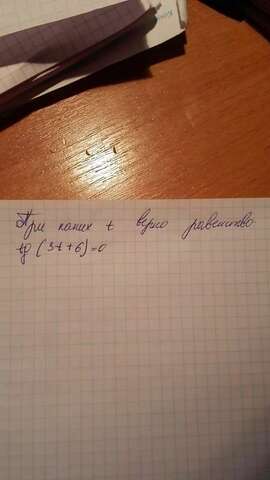 При каких t верно равенство
tg (3t+6)=0